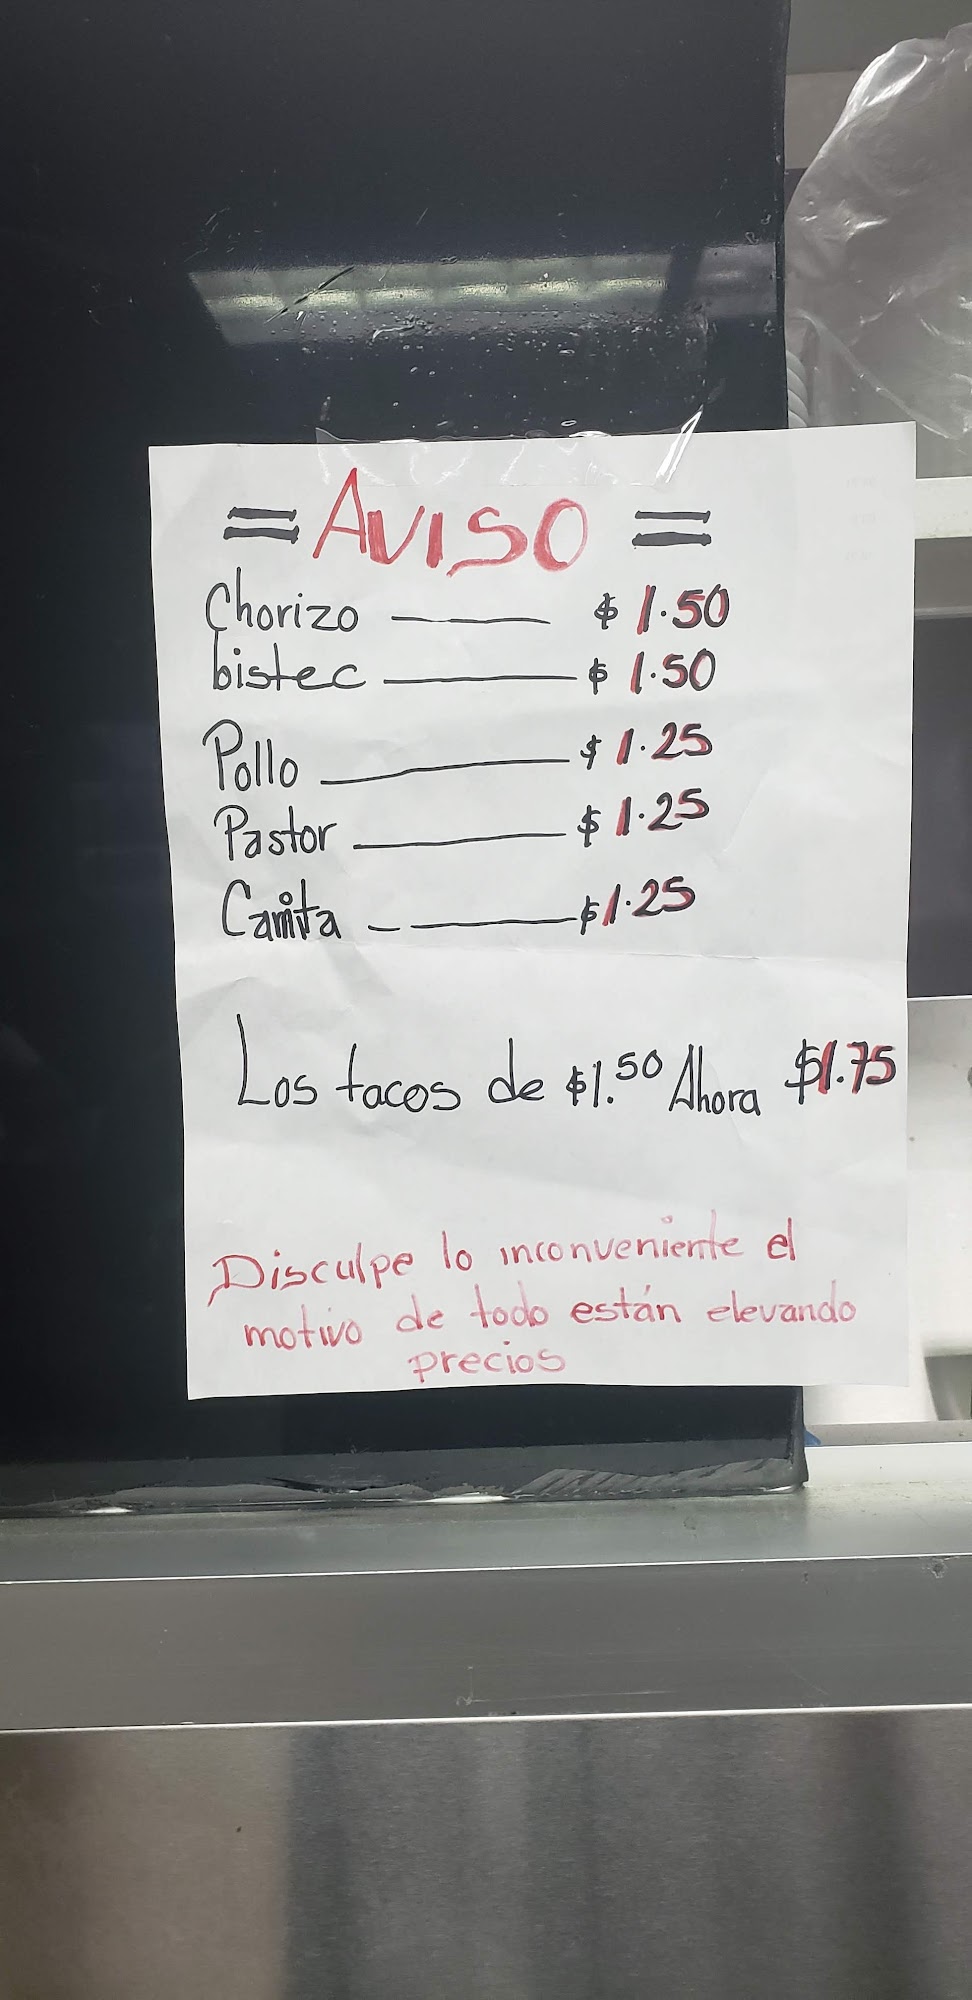 = AVISO =
Chorizo — $ 1.50
bistec — $ 1.50
Pollo — $ 1.25
Pastor — $ 1.25
Carnita — $1.25
Los tacos de $1.50 Ahora $1.75
Disculpe lo inconveniente el
motivo de todo están elevando
precios